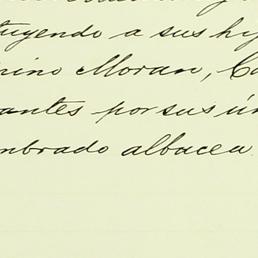 tuyendo a sus hij
nino Moran, Ca
antes por sus ún
nbrado albacea